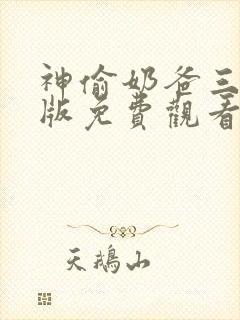 神偷奶爸三
版免費觀看
天鵝山